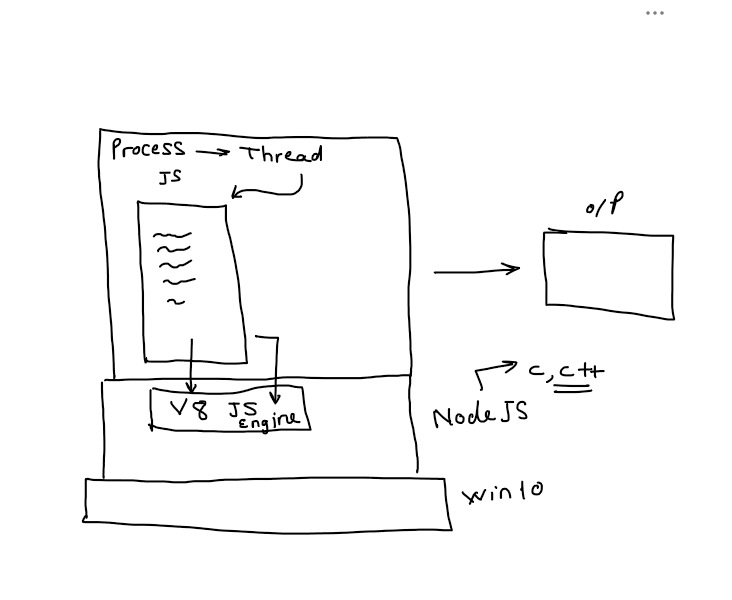 Process → Thread
JS
o/p
V8 JS
Engine
c, c++
NodeJS
win10